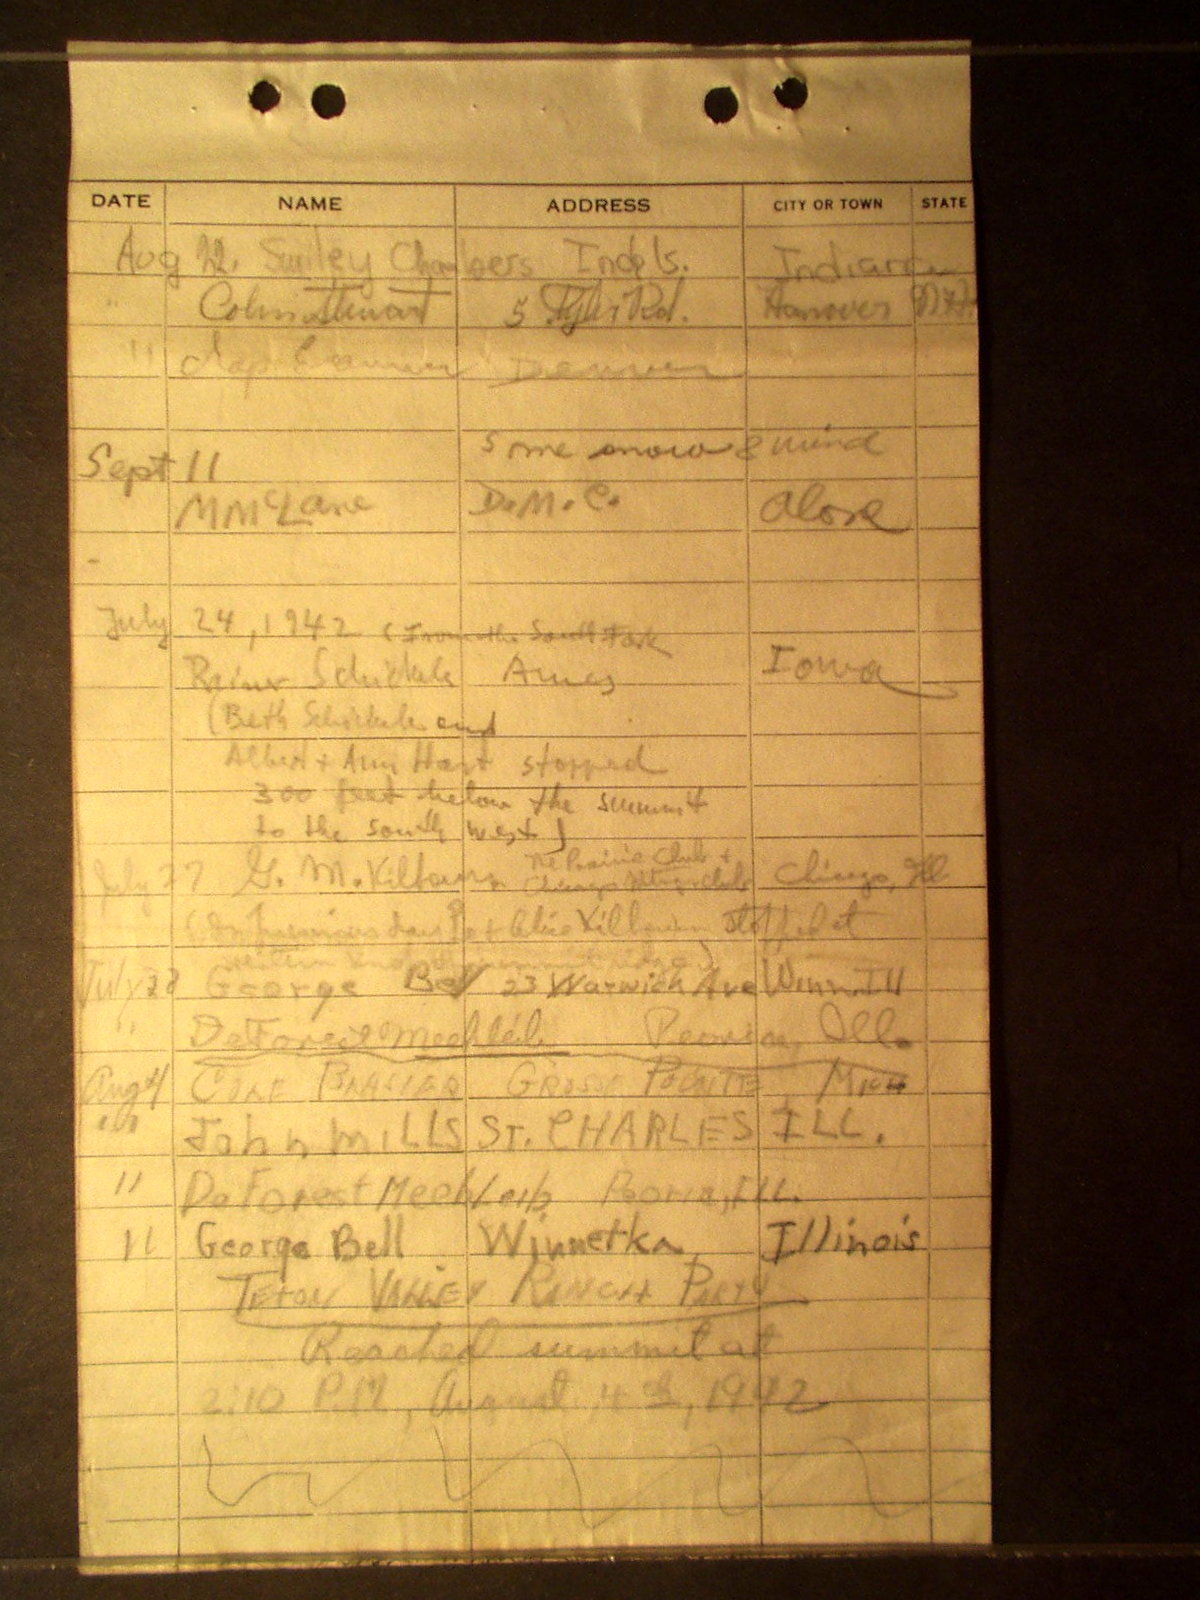 DATE NAME ADDRESS CITY OR TOWN STATE
Aug 22. Smiley Chambers Indpls. Indiana
" Colin Stewart 5 Tyler Rd. Hanover N.H.
" Denver
Some snow & wind
Sept 11
M McLane D.M.C. alone
July 24, 1942 (From the South Fork
Rainer Schickele Ames Iowa
(Beth Schickele and
Albert + Ann Hart stopped
300 feet below the summit
to the south west)
July 27 G. M. Kilbourn The Prairie Club + Chicago, Ill
Chicago Mtng. Club
(On previous day + Kilbourn stopped at
western end of summit ridge)
July 28 George Bell 23 Warwick Ave Winn. Ill
" DeForest Mechleib Peoria, Ill.
Aug 4 BRASIER GROSSE POINTE MICH
" " John MILLS ST. CHARLES ILL.
" DeForest Mechleib Peoria, Ill.
" George Bell Winnetka, Illinois
TETON VALLEY RANCH PARTY
Reached summit at
2:10 P.M., August 4th, 1942